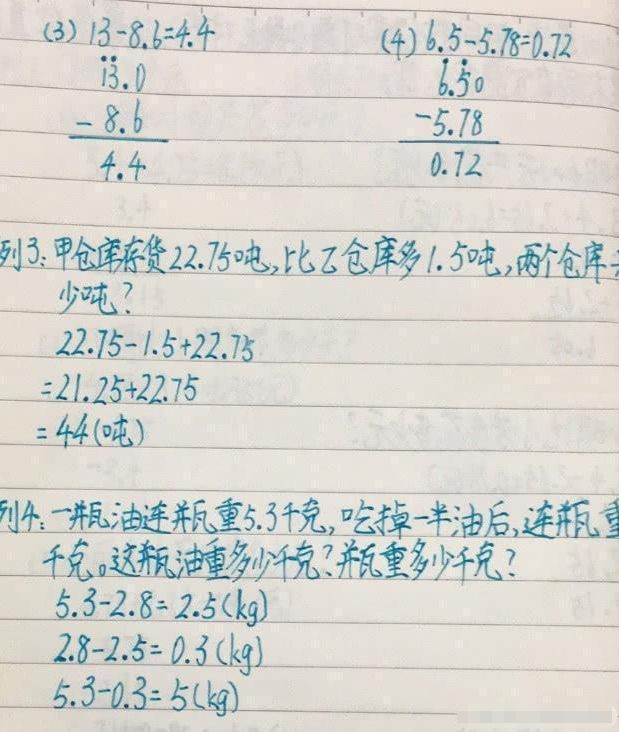 (3) 13-8.6=4.4
(4) 6.5-5.78=0.72
13.0
- 8.6
4.4
6.50
-5.78
0.72
列3:甲仓库存货22.75吨,比乙仓库多1.5吨,两个仓库
少吨?
22.75-1.5+22.75
=21.25+22.75
=44(吨)
列4:一瓶油连瓶重5.3千克,吃掉一半油后,连瓶重
千克。这瓶油重多少千克?瓶重多少千克?
5.3-2.8=2.5(kg)
2.8-2.5=0.3(kg)
5.3-0.3=5(kg)